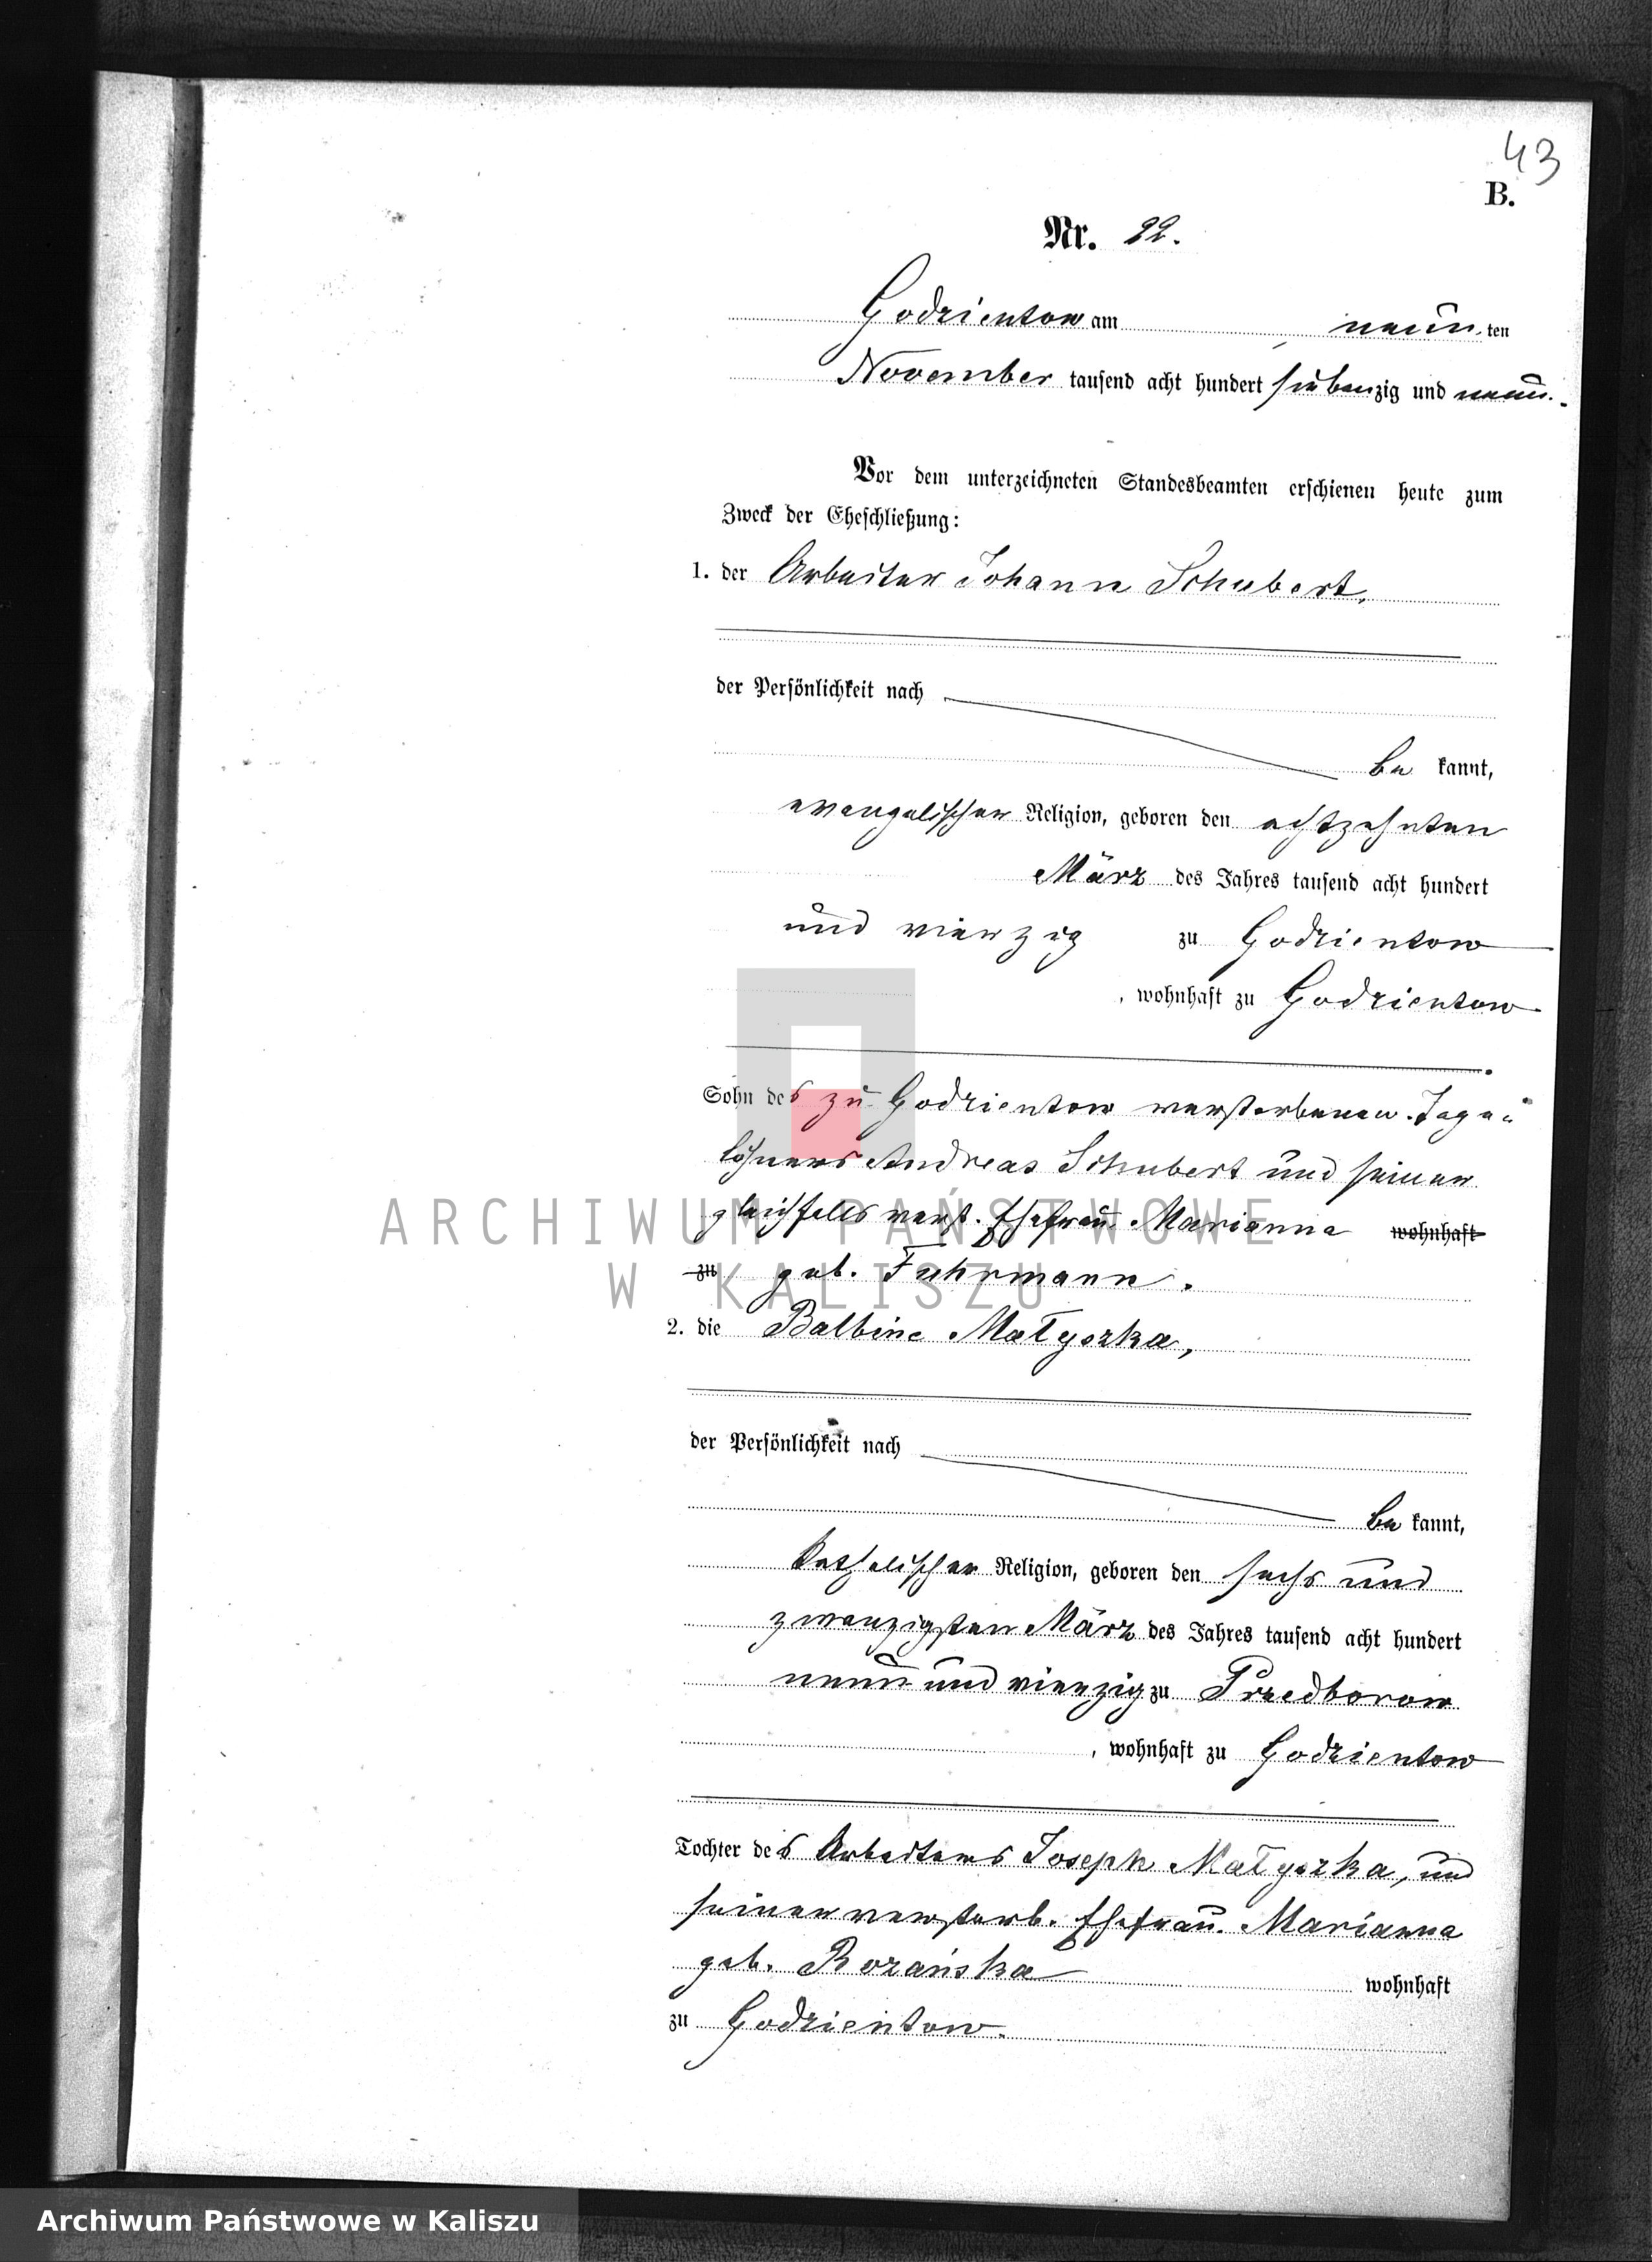 43
B.
Nr. 22.
Godzientow am neun ten
November tausend acht hundert siebenzig und neun.
Vor dem unterzeichneten Standesbeamten erschienen heute zum
Zweck der Eheschließung:
1. der Arbeiter Johann Schubert,
der Persönlichkeit nach
be kannt,
evangelischer Religion, geboren den achtzehnten
März des Jahres tausend acht hundert
und vierzig zu Godzientow
, wohnhaft zu Godzientow
Sohn des zu Godzientow verstorbenen Tage-
löhners Andreas Schubert und seiner
gleichfalls verst. Ehefrau Marianna wohnhaft
zu geb. Fuhrmann.
2. die Balbine Małyszka,
der Persönlichkeit nach
be kannt,
katholischer Religion, geboren den sechs und
zwanzigsten März des Jahres tausend acht hundert
neun und vierzig zu Przedborow
, wohnhaft zu Godzientow
Tochter des Arbeiters Joseph Małyszka, und
seiner verstorb. Ehefrau Marianna
geb. Rozańska wohnhaft
zu Godzientow.
ARCHIWUM PAŃSTWOWE
W KALISZU
Archiwum Państwowe w Kaliszu